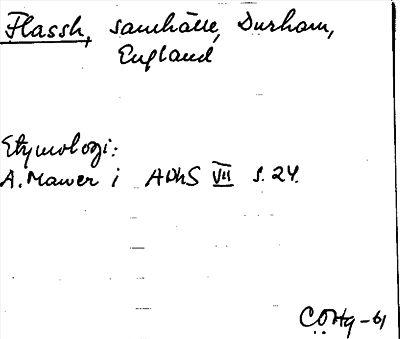 Flassh, samhälle, Durham,
England
Etymologi:
A. Mawer i APhS VII s. 24.
COHg-61